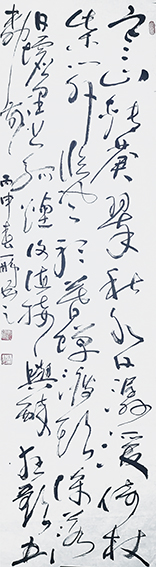 寒山转苍翠秋水日潺湲倚杖
柴门外临风听暮蝉渡头余落
日墟里上孤烟复值接舆醉狂歌五
柳前 丙申春